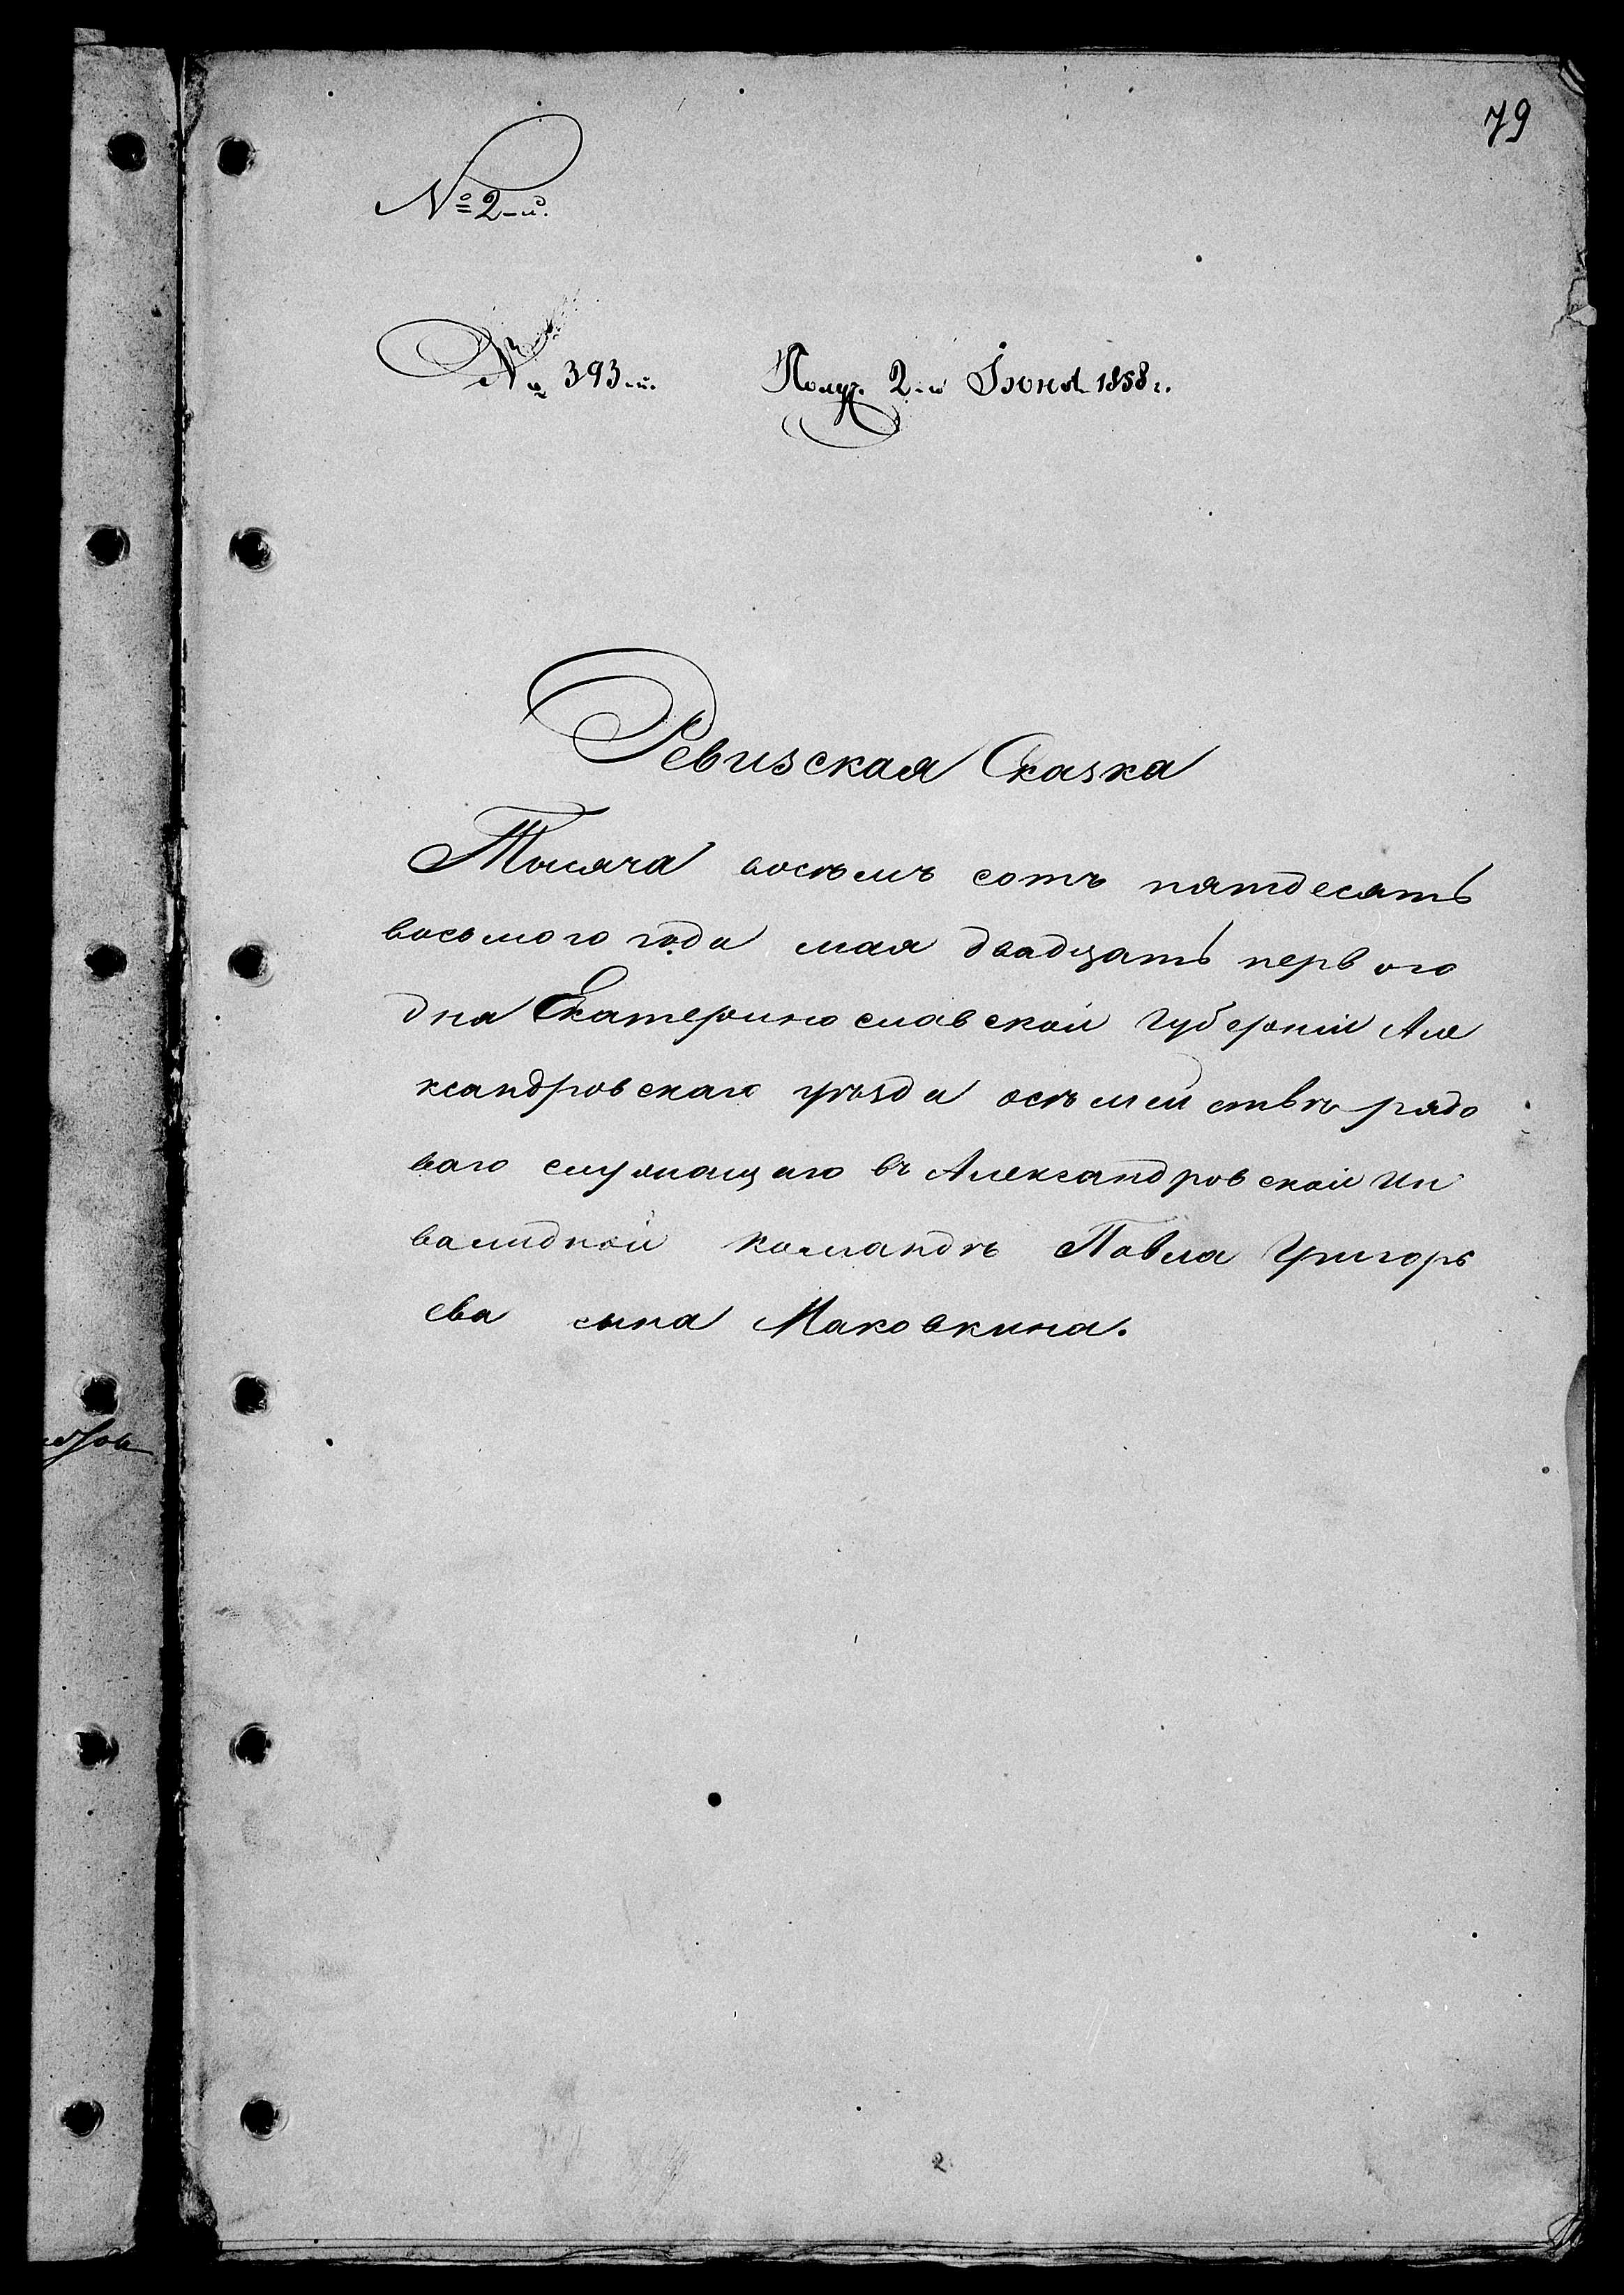 79
№ 2-й.
№ 393-й. Получ. 2-го Іюня 1858 г.
Ревизская Сказка
Тысяча восѣмъ сотъ пятдесятъ
восьмого года мая двадцать перваго
дня Екатеринославской губерніи Але
ксандровскаго уѣзда осѣмействѣ рядо
ваго служащаго въ Александровской Ин
валидной командѣ Павла Григорь
ева сына Маковкина.
2